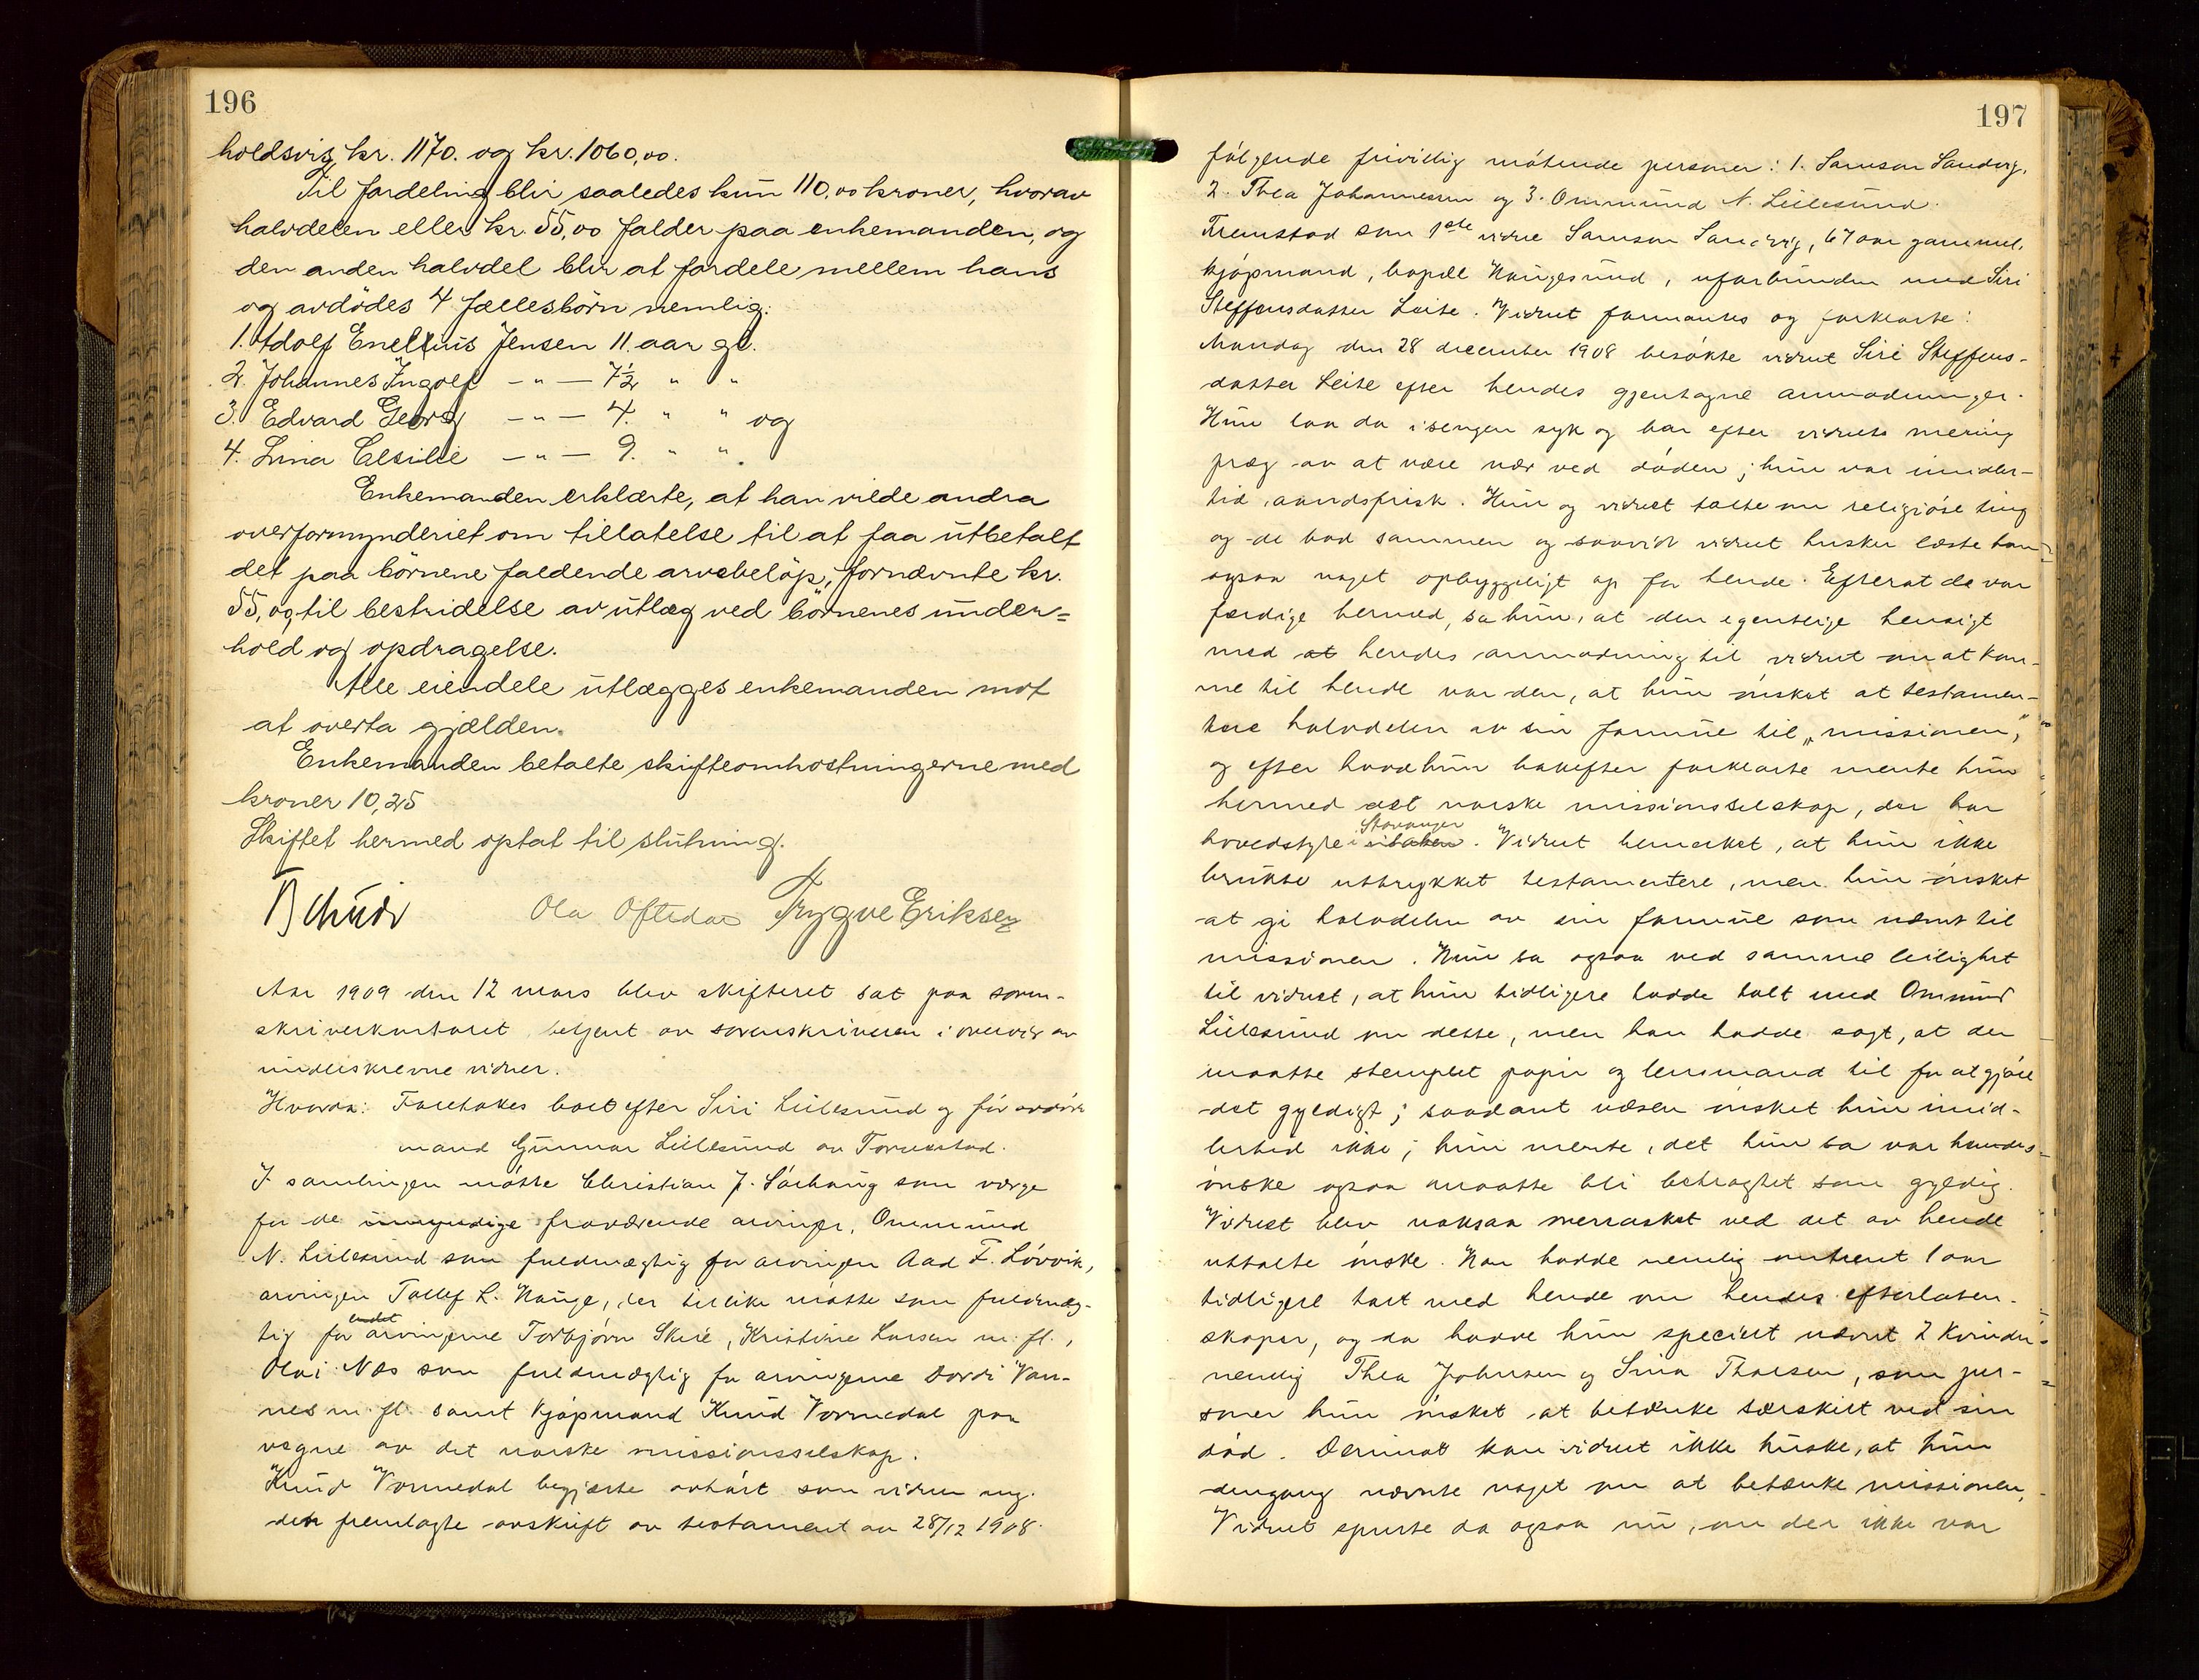 196
holdsvis kr. 1170. og kr. 1060,00.
Til fordeling blir saaledes kun 110,00 kroner, hvorav
halvdelen eller kr. 55,00 falder paa enkemanden, og
den anden halvdel blir at fordele mellem hans
og avdødes 4 fællesbörn nemlig:
1. Adolf Enelius Jensen 11. aar gl.
2. Johannes Ingolf -"- 7½ " "
3. Edvard Georg -"- 4. " " og
4. Lina Cesilie -"- 9. " ".
Enkemanden erklærte, at han vilde andra
overformynderiet om tillatelse til at faa utbetalt
det paa börnene faldende arvebelöp, fornævnte kr.
55,00 til bestridelse av utlæg ved börnenes under=
hold og opdragelse.
Alle eiendele utlægges enkemanden mot
at overta gjælden.
Enkemanden betalte skifteomkostningerne med
kroner 10,25
Skiftet hermed optat til slutning.
Schiör Ola Oftedal Trygve Eriksen
Aar 1909 den 12 mars blev skifteret sat paa soren-
skriverkontoret betjent av sorenskriveren i overvær av
underskrevne vidner.
Hvorda: Foretokes boet efter Siri Lillesund og før avdøde
mand Gunnar Lillesund av Torvestad.
I samlingen møtte Christian J. Sørhaug som værge
for de umyndige fraværende arvinger, Ommund
N. Lillesund som fuldmægtig for arvingen Aad F. Løvvik,
arvingen Tollef L. Hauge, der tillike møtte som fuldmæg-
tig for endel arvingerne Torbjørn Skeie, Kristine Larsen m. fl.,
Olai Næs som fuldmægtig for arvingerne Dordi Van-
nes m. fl. samt kjøpmand Knud Vormedal paa
vegne av det norske missionsselskap.
Knud Vormedal begjærte avhørt som vidner ang.
den fremlagte avskrift av testament av 28/12 1908.
197
følgende frivillig møtende personer: 1. Samson Sandvig,
2. Thea Johannessen og 3. Ommund N. Lillesund.
Fremstod som 1ste vidne Samson Sandvig, 67 aar gammel,
kjøpmand, bopæl Haugesund, uforbunden med Siri
Steffensdatter Leite. Vidnet formantes og forklarte:
Mandag den 28 december 1908 besøkte vidnet Siri Steffens-
datter Leite efter hendes gjentagne anmodninger.
Hun laa da i sengen syk og bar efter vidnets mening
præg av at være nær ved døden; hun var imidler-
tid aandsfrisk. Hun og vidnet talte om religiøse ting
og de bad sammen og saavidt vidnet husker læste han
ogsaa noget opbyggeligt op for hende. Efterat de var
færdige hermed, sa hun, at den egentlige hensigt
med at hendes anmodning til vidnet om at kom-
me til hende var den, at hun ønsket at testamen-
tere halvdelen av sin formue til „missionen",
og efter hvad hun bakefter forklarte mente hun
hermed det norske missionsselskap, der har
hovedstyre i Stavanger. Vidnet bemerket, at hun ikke
brukte uttrykket testamentere, men hun ønsket
at gi halvdelen av sin formue som nævnt til
missionen. Hun sa ogsaa ved samme leilighet
til vidnet, at hun tidligere hadde talt med Ommund
Lillesund om dette, men han hadde sagt, at der
maatte stemplet papir og lensmand til for at gjøre
det gyldigt; saadant væsen ønsket hun imid-
lertid ikke; hun mente, det hun sa var hendes
ønske ogsaa maatte bli betragtet som gyldig.
Vidnet blev noksaa overrasket ved det av hende
uttalte ønske. Han hadde nemlig omtrent 1 aar
tidligere talt med hende om hendes efterlaten-
skaper, og da hadde hun specielt nævnt 2 kvinder
nemlig Thea Johnsen og Sina Thorsen, som per-
soner hun ønsket at betænke særskilt ved sin
død. Derimot kan vidnet ikke huske, at hun
dengang nævnte noget om at betænke missionen,
Vidnet spurte da ogsaa nu, om der ikke var